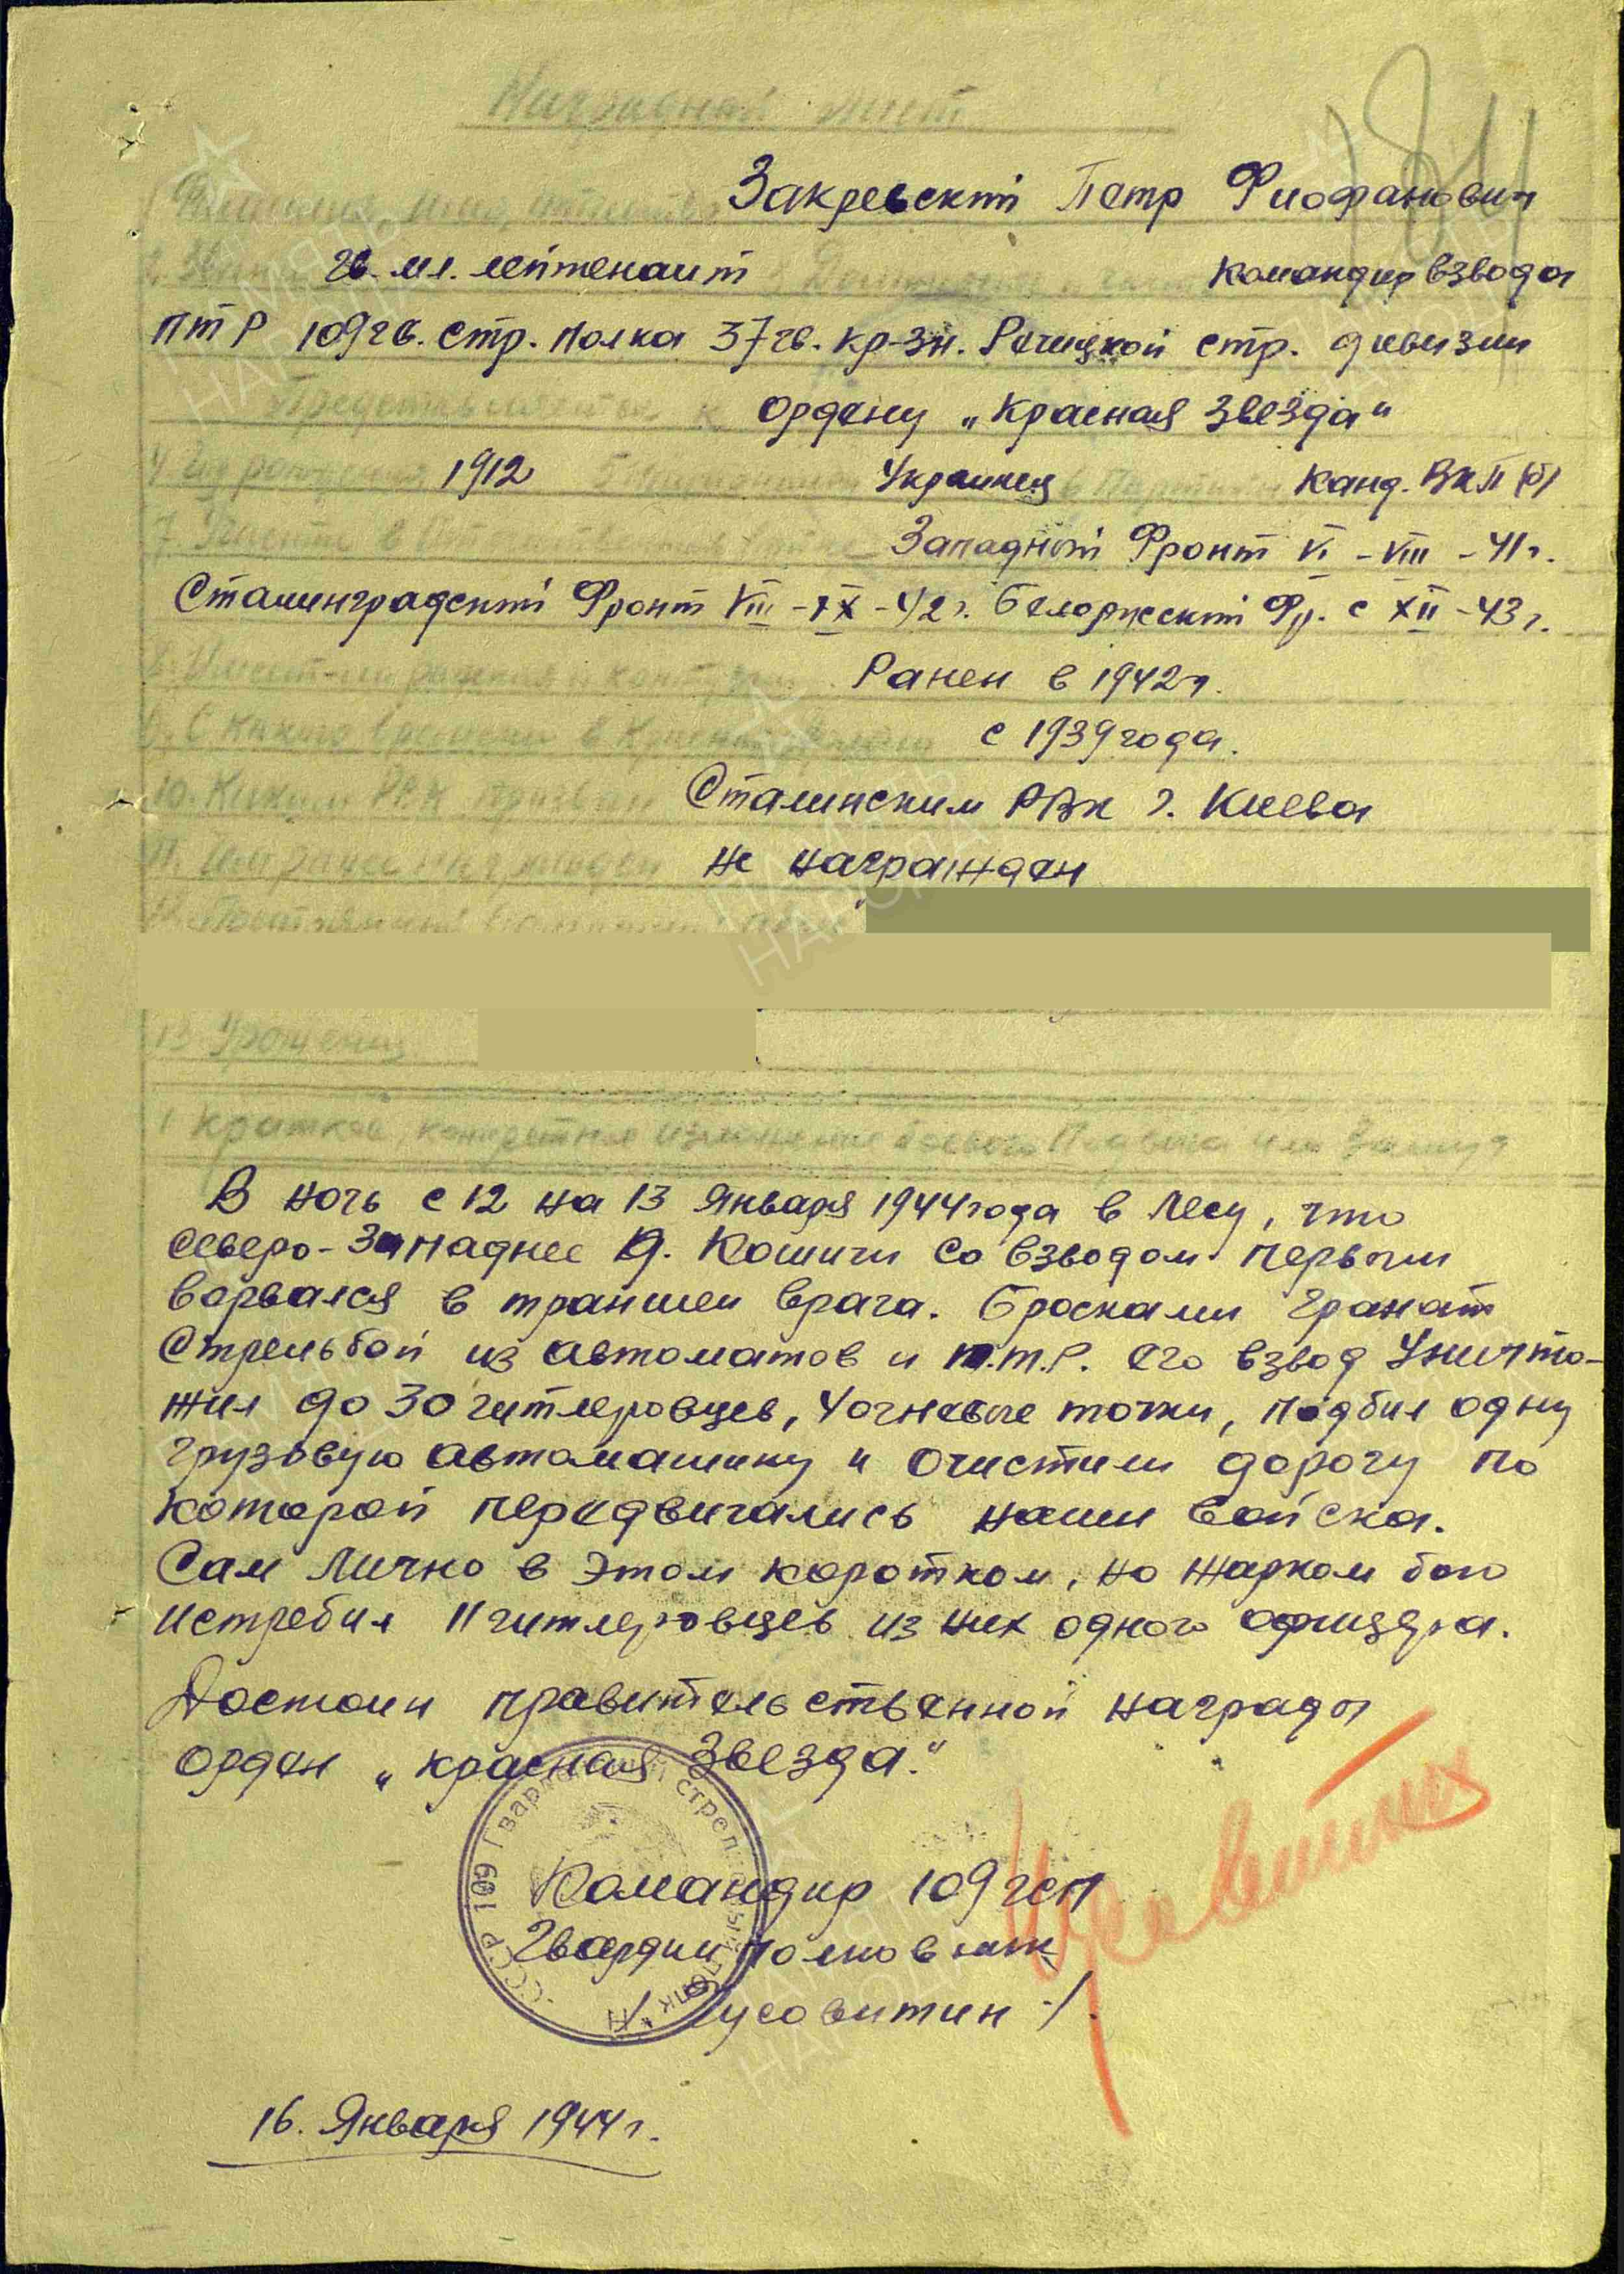 Наградной лист
Фамилия, имя, отчество Закревский Петр Фиофанович
2. Звание гв. мл. лейтенант Должность, часть командир взвода
ПТР 109 гв. стр. полка 37 гв. кр-зн. Речицкой стр. дивизии
Представляется к ордену „Красная Звезда"
4. Год рождения 1912 Украинец 6. Парт. Канд. ВКП(б)
7. Участие в Западный Фронт VI - VIII - 41г.
Сталинградский Фронт VIII - IX - 42г. Белорусский Фр. с XII - 43г.
8. Имеет ли ранения и контузии Ранен в 1942г.
9. С какого времени в Красной Армии с 1939 года.
10. Каким РВК призван Сталинским РВК г. Киева
11. Чем ранее награжден не награжден
12. Постоянный домашний адрес
13. Уроженец
1 Краткое, конкретное изложение боевого подвига или заслуг
В ночь с 12 на 13 Января 1944 года в лесу, что
северо-западнее д. Кошичи со взводом первым
ворвался в траншеи врага. Бросками гранат
стрельбой из автоматов и п.т.р. его взвод уничто-
жил до 30 гитлеровцев, 4 огневые точки, подбил одну
грузовую автомашину и очистили дорогу по
которой передвигались наши войска.
Сам лично в этом коротком, но жарком бою
истребил 11 гитлеровцев из них одного офицера.
Достоин правительственной награды
орден „Красная Звезда."
Командир 109 гсп
Гвардии полковник
/ Пусовитин /.
16. Января 1944г.
184
СССР 109 Гвардейский стрелковый полк
ПАМЯТЬ НАРОДА